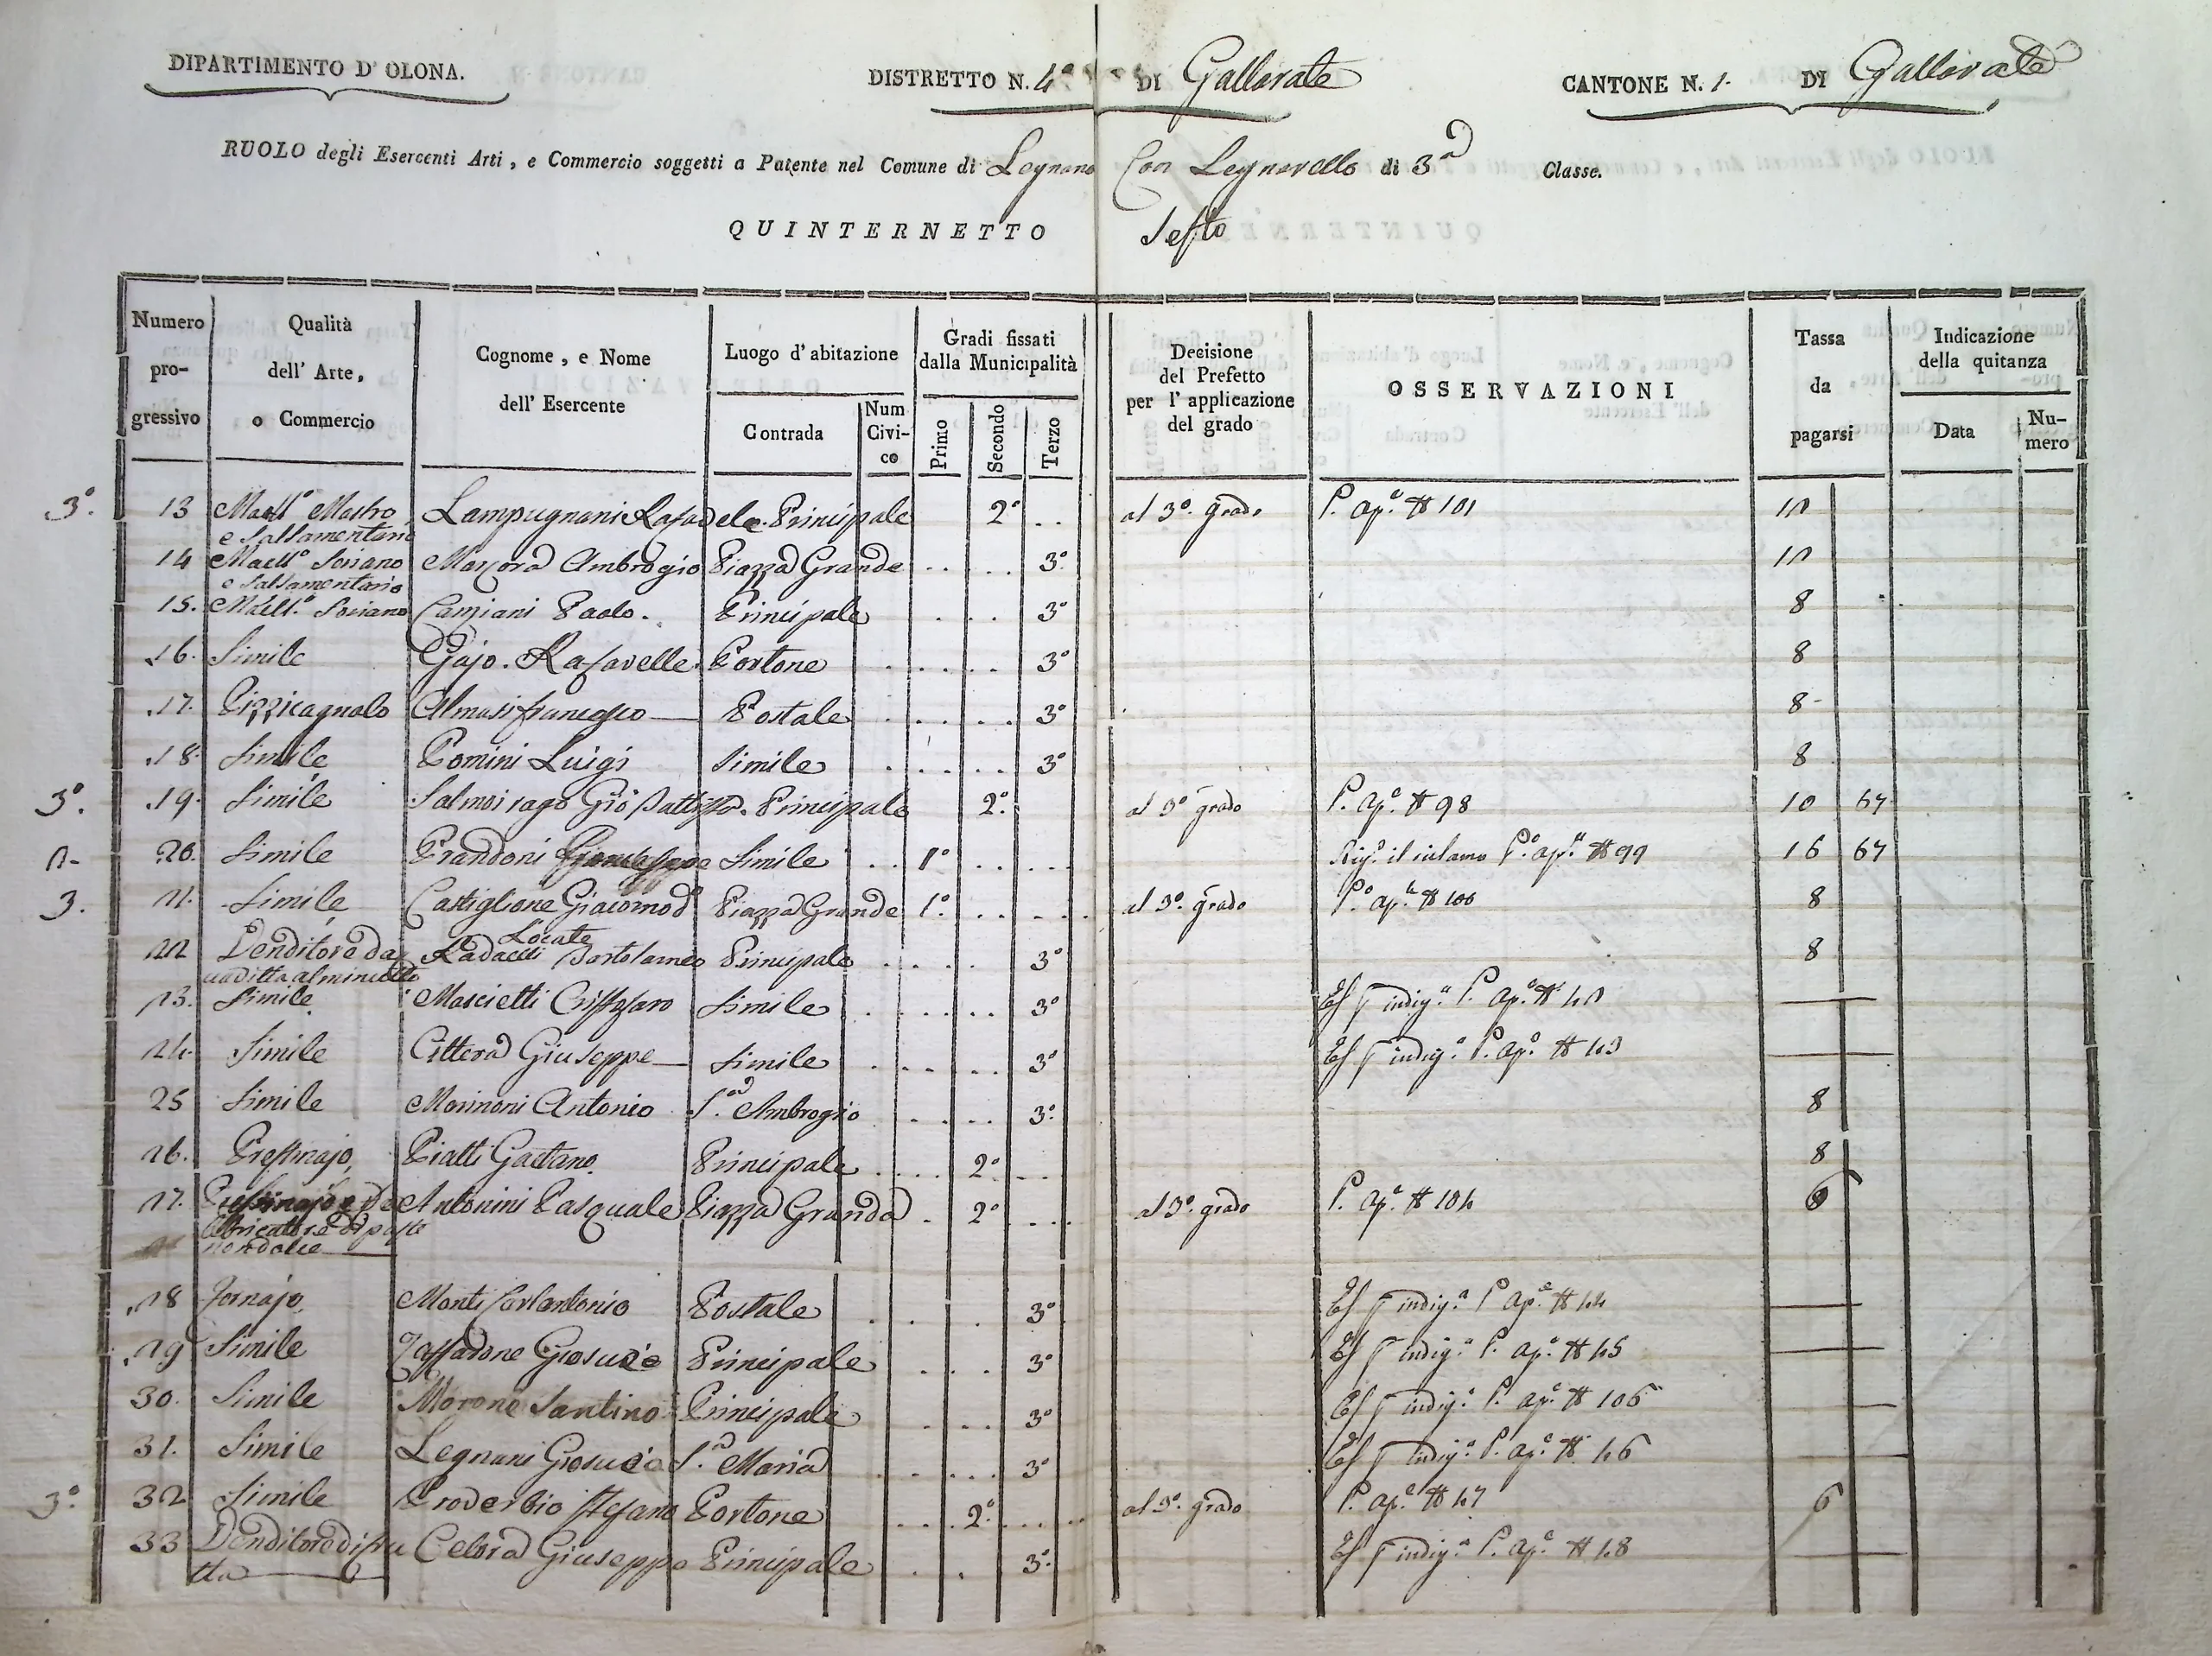 DIPARTIMENTO D' OLONA.
DISTRETTO N. 4° DI Gallarate
CANTONE N. 1. DI Gallarate
RUOLO degli Esercenti Arti, e Commercio soggetti a Patente nel Comune di Legnano Con Legnarello di 3a Classe.
QUINTERNETTO Sesto
Numero progressivo
Qualità dell' Arte, o Commercio
Cognome, e Nome dell' Esercente
Luogo d' abitazione
Contrada
Num Civi-co
Gradi fissati dalla Municipalità
Primo
Secondo
Terzo
Decisione del Prefetto per l' applicazione del grado
OSSERVAZIONI
Tassa da pagarsi
Indicazione della quitanza
Data
Nu-mero
3°. 13 Macll° Mastro Lampugnani Rafaele Principale 2° al 3°. grado P. ap.e # 101 12
e Salsamentario
14 Macll° Soriano Mayora Ambrogio Piazza Grande 3° 12
e Salsamentario
15. Macll.° Soriano Camiani Paolo. Principale 3° 8
16. Simile Gajo. Rafaelle Portone 3° 8
17. Pizzicagnolo Almasi francesco Postale 3° 8
18. Simile Pomini Luigi Simile 3° 8
3°. 19. Simile Salmoirago Gio Battista Principale 2° al 3° grado P. ap.e # 98 10 67
2- 20. Simile Prandoni Simile 1° P.° ap.e # 99 16 67
3. 21. Simile Castiglione Giacomo Piazza Grande 1° al 3°. grado P.° ap.e # 100 8
Locate
22 Venditore da Radaelli Bortolameo Principale 3° 8
uaditta al minutto
23. Simile Mascietti Cristofaro Simile 3° Es p indig.a P. ap.e # 42
24. Simile Cittera Giuseppe Simile 3° Es p indig.a P. ap.e # 43
25 Simile Morinoni Antonio S.a Ambrogio 3° 8
26. Prestinajo Piatti Gaetano Principale 2° 8
27. Prestinajo e Antonini Pasquale Piazza Granda 2° al 3°. grado P. ap.e # 104 6
fabricattore di paste
non dolce
28 Fornajo Monti Carlantonio Postale 3° Es p indig.a P. ap.e # 44
29 Simile Zaffarone Giosuè Principale 3° Es p indig.a P. ap.e # 45
30. Simile Morone Santino Principale 3° Es p indig.a P. ap.e # 106
31. Simile Legnani Giosuè S.a Maria 3° Es p indig.a P. ap.e # 46
3°. 32 Simile Proverbio Stefano Portone 2° al 3°. grado P. ap.e # 47 6
33 Venditore di fru Celora Giuseppe Principale 3° Es p indig.a P. ap.e # 48
tta